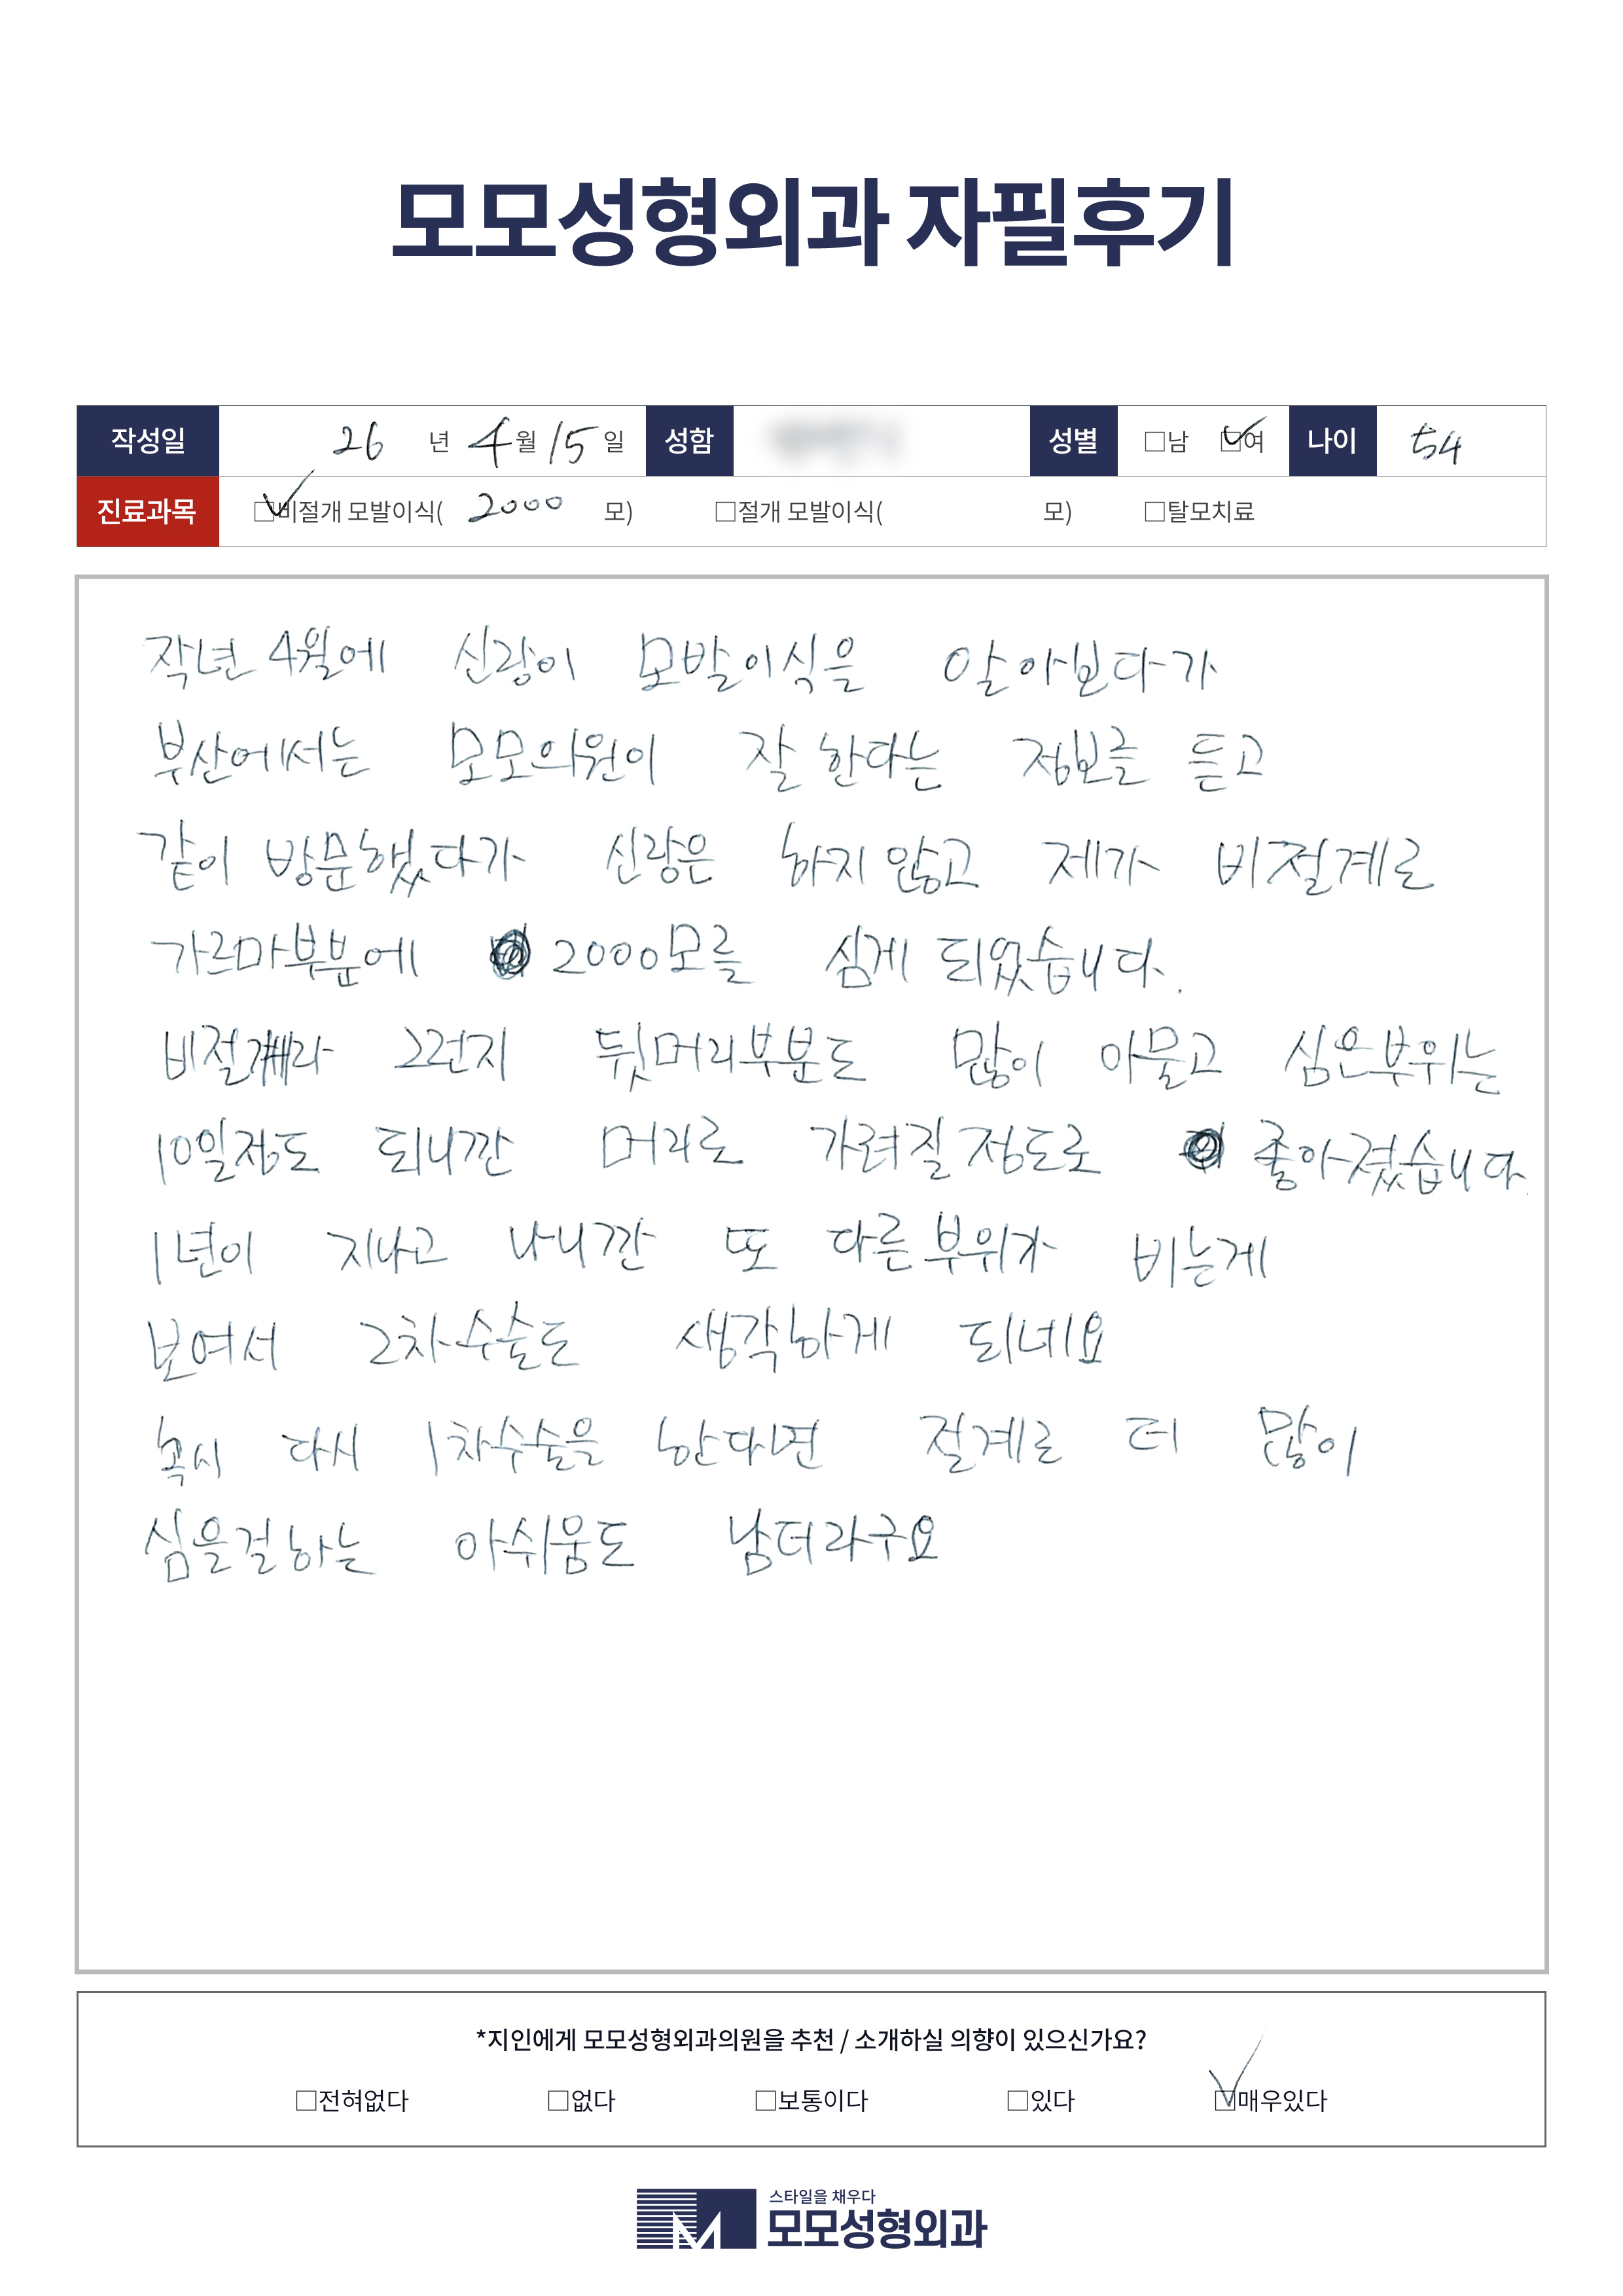 모모성형외과 자필후기
작성일 26 년 4 월 15 일 성함 성별 □남 □여 나이 54
진료과목 □비절개 모발이식( 2000 모) □절개 모발이식( 모) □탈모치료
작년 4월에 신랑이 모발이식을 알아보다가
부산에서는 모모의원이 잘 한다는 정보를 듣고
같이 방문했다가 신랑은 하지 않고 제가 비절계로
가르마부분에 2000모를 심게 되었습니다.
비절계라 그런지 뒷머리부분도 많이 아물고 심은부위는
10일정도 되니깐 머리로 가려질 정도로 좋아졌습니다.
1년이 지나고 나니깐 또 다른 부위가 비는게
보여서 2차수술도 생각하게 되네요
혹시 다시 1차수술을 한다면 절계로 더 많이
심을걸하는 아쉬움도 남더라구요
*지인에게 모모성형외과의원을 추천 / 소개하실 의향이 있으신가요?
□전혀없다 □없다 □보통이다 □있다 □매우있다
스타일을 채우다
모모성형외과